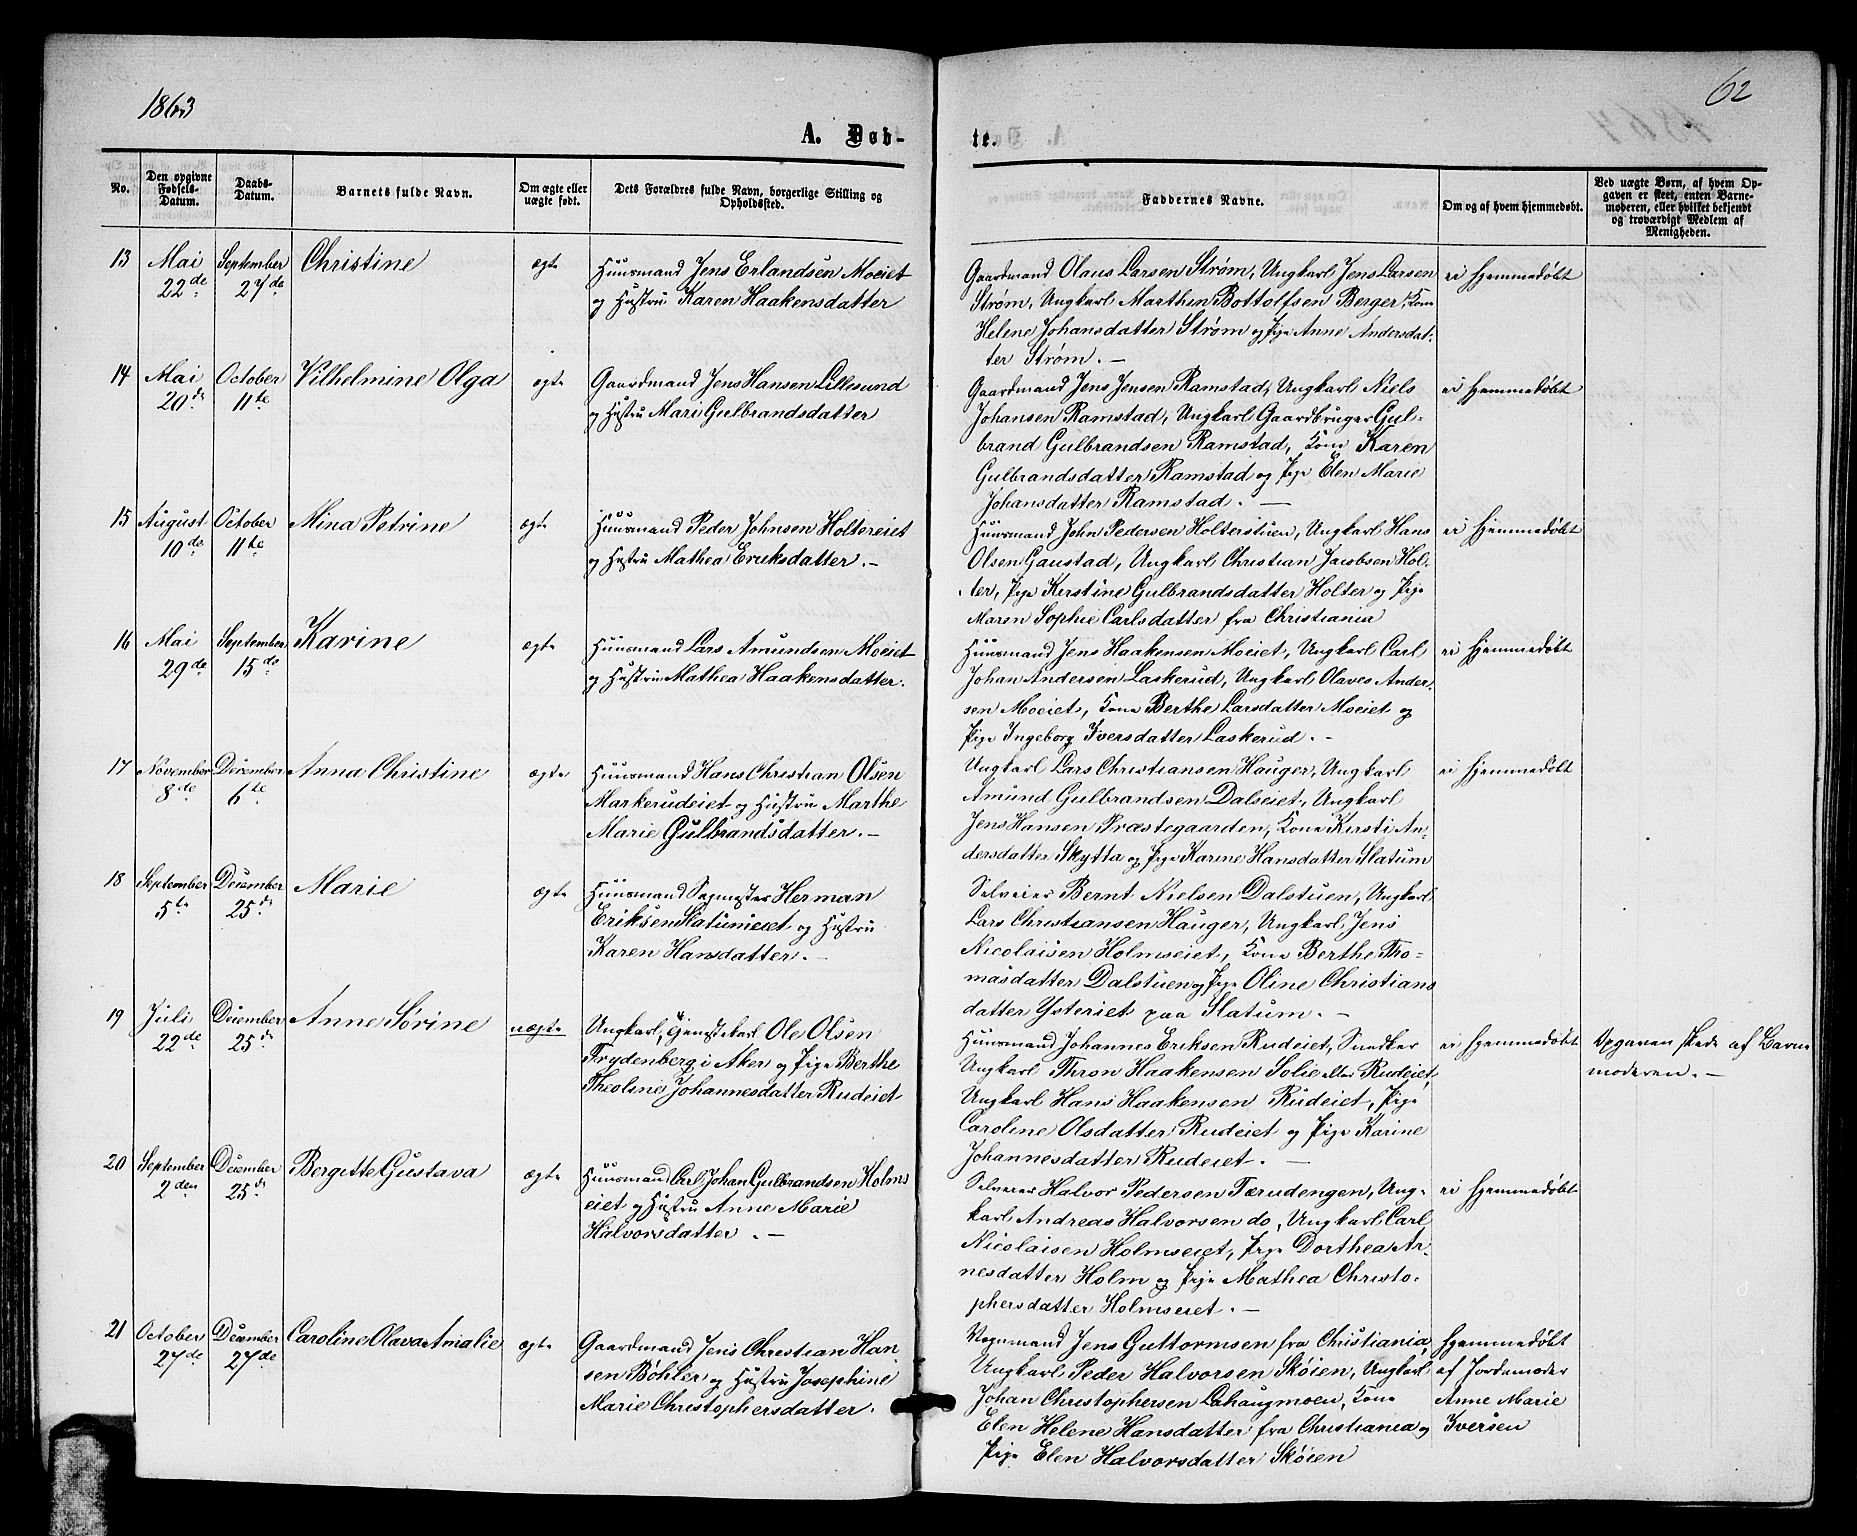 1863
62
A. Døb-
te.
No.
Den opgivne
Fødsels-
Datum.
Daabs-
Datum.
Barnets fulde Navn.
Om ægte eller
uægte født.
Dets Forældres fulde Navn, borgerlige Stilling og
Opholdssted.
Faddernes Navne.
Om og af hvem hjemmedøbt.
Ved uægte Børn, af hvem Op-
gaven er skeet, enten Barne-
moderen, eller hvilket bekjendt
og troværdigt Medlem af
Menigheden.
13
Mai
22de
September
27de
Christine
ægte
Huusmand Jens Erlandsen Moeiet
og Hustru Karen Haakensdatter
Gaardmand Olaus Larsen Strøm, Ungkarl Jens Larsen
Strøm, Ungkarl Marthin Bottolfsen Berger, Kone
Helene Johansdatter Strøm og Pige Anne Andersdat-
ter Strøm. -
ei hjemmedøbt
14
Mai
20de
October
11te
Vilhelmine Olga
ægte
Gaardmand Jens Hansen Lillesund
og Hustru Mari Gulbrandsdatter
Gaardmand Jens Jensen Ramstad, Ungkarl Niels
Johansen Ramstad, Ungkarl Gaardbruger Gul-
brand Gulbrandsen Ramstad, Kone Karen
Gulbrandsdatter Ramstad og Pige Elen Marie
Johansdatter Ramstad. -
ei hjemmedøbt
15
August
10de
October
11te
Mina Petrine
ægte
Huusmand Peder Johnsen Holtereiet
og Hustru Mathea Eriksdatter. -
Huusmand John Pedersen Holterstuen, Ungkarl Hans
Olsen Gaustad, Ungkarl Christian Jacobsen Hol-
ter, Pige Kerstine Gulbrandsdatter Holter og Pige
Maren Sophie Carlsdatter fra Christiania
ei hjemmedøbt
16
Mai
29de
September
15de
Karine
ægte
Huusmand Lars Amundsen Moeiet
og Hustru Mathea Haakensdatter.
Huusmand Jens Haakensen Moeiet, Ungkarl Carl
Johan Andersen Laskerud, Ungkarl Olaves Ander-
sen Moeiet, Kone Berthe Larsdatter Moeiet og
Pige Ingeborg Iversdatter Laskerud. -
ei hjemmedøbt
17
November
8de
December
6te
Anna Christine
ægte
Huusmand Hans Christian Olsen
Markerudeiet og Hustru Marthe
Marie Gulbrandsdatter. -
Ungkarl Lars Christiansen Hauger, Ungkarl
Amund Gulbrandsen Dalseiet, Ungkarl
Jens Hansen Præstegaarden, Kone Kersti An-
dersdatter Skytta og Pige Karine Hansdatter Slatum
ei hjemmedøbt
18
September
5te
December
25de
Marie
ægte
Huusmand Sagmester Herman
Eriksen Slatumeiet og Hustru
Karen Hansdatter. -
Selveier Bernt Nielsen Dalstuen, Ungkarl
Lars Christiansen Hauger, Ungkarl Jens
Nicolaisen Holmseiet, Kone Berthe Tho-
masdatter Dalstuen og Pige Oline Christians
datter Ysteriet paa Slatum. -
19
Juli
22de
December
25de
Anne Sørine
uægte
Ungkarl, Tjenestekarl Ole Olsen
Frydenberg i Aker og Pige Berthe
Theoline Johannesdatter Rudeiet
Huusmand Johannes Eriksen Rudeiet, Snedker
Ungkarl Thron Haakensen Solie eller Rudeiet,
Ungkarl Hans Haakensen Rudeiet, Pige
Caroline Olsdatter Rudeiet og Pige Karine
Johannesdatter Rudeiet. -
ei hjemmedøbt
Opgaven skede af Barne
moderen. -
20
September
2den
December
25de
Bergitte Gustava
ægte
Huusmand Carl Johan Gulbrandsen Holms
eiet og Hustru Anne Marie
Halvorsdatter. -
Selveier Halvor Pedersen Tærudengen, Ung-
karl Andreas Halvorsen do, Ungkarl Carl
Nicolaisen Holmseiet, Pige Dorthea Ar-
nesdatter Holm og Pige Mathea Christo-
phersdatter Holmseiet. -
ei hjemmedøbt
21
October
27de
December
27de
Caroline Olava Amalie
ægte
Gaardmand Jens Christian Han-
sen Böhler og Hustru Josephine
Marie Christophersdatter.
Vognmand Jens Guttormsen fra Christiania,
Ungkarl Peder Halvorsen Skøien, Ungkarl
Johan Christophersen Lahaugmoen, Kone
Elen Helene Hansdatter fra Christiania og
Pige Elen Halvorsdatter Skøien
Hjemmedøbt
af Jordemoder
Anne Marie
Iversen